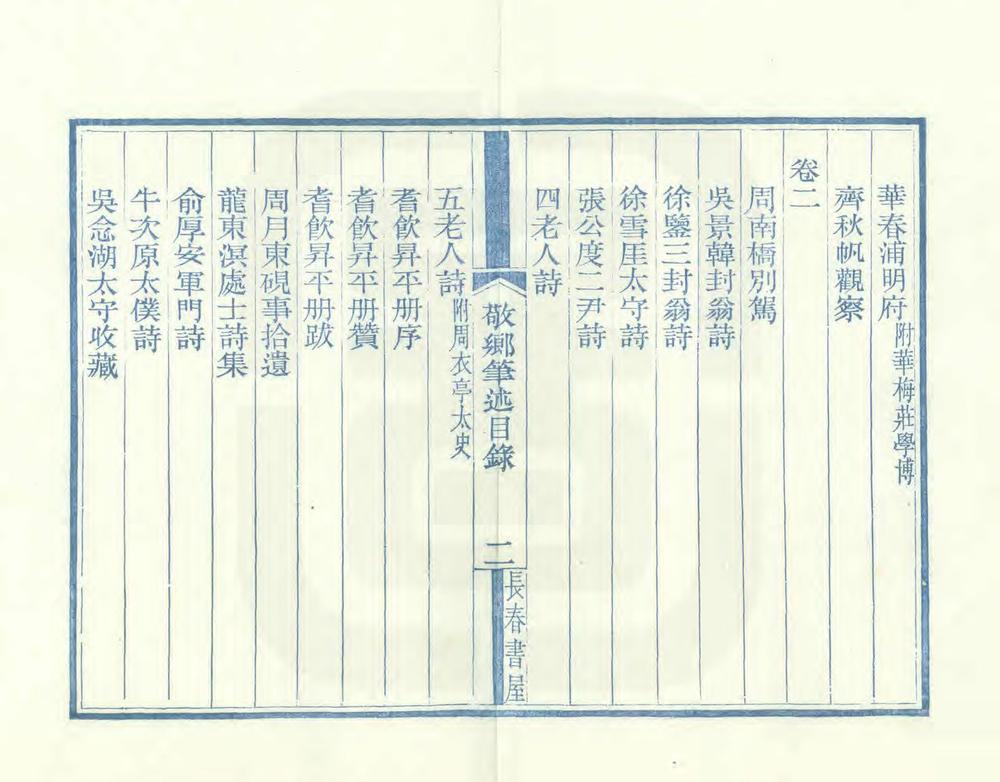 華春浦明府附華梅莊學博
齊秋帆觀察
卷二
周南橋別駕
吳景韓封翁詩
徐鑒三封翁詩
徐雪厓太守詩
張公度二尹詩
四老人詩
敬鄉筆述目錄
二
長春書屋
五老人詩附周衣亭太史
耆飲昇平册序
耆飲昇平册贊
耆飲昇平册跋
周月東硯事拾遺
龍東溟處士詩集
俞厚安軍門詩
牛次原太僕詩
吳念湖太守收藏